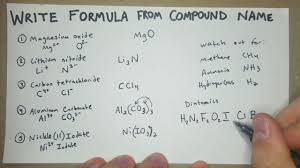 WRITE FORMULA FROM COMPOUND NAME
① Magnesium oxide MgO
Mg²⁺ O²⁻
② Lithium nitride Li₃N
Li⁺ N³⁻
③ Carbon tetrachloride CCl₄
C⁴⁺ Cl⁻
④ Aluminum Carbonate Al₂(CO₃)₃
Al³⁺ CO₃²⁻
⑤ Nickel(II) Iodate Ni(IO₃)₂
Ni²⁺ Iodate
Watch out for:
Methane CH₄
Ammonia NH₃
Hydrogen Gas H₂
Diatomics
H₂N₂F₂O₂I Cl B